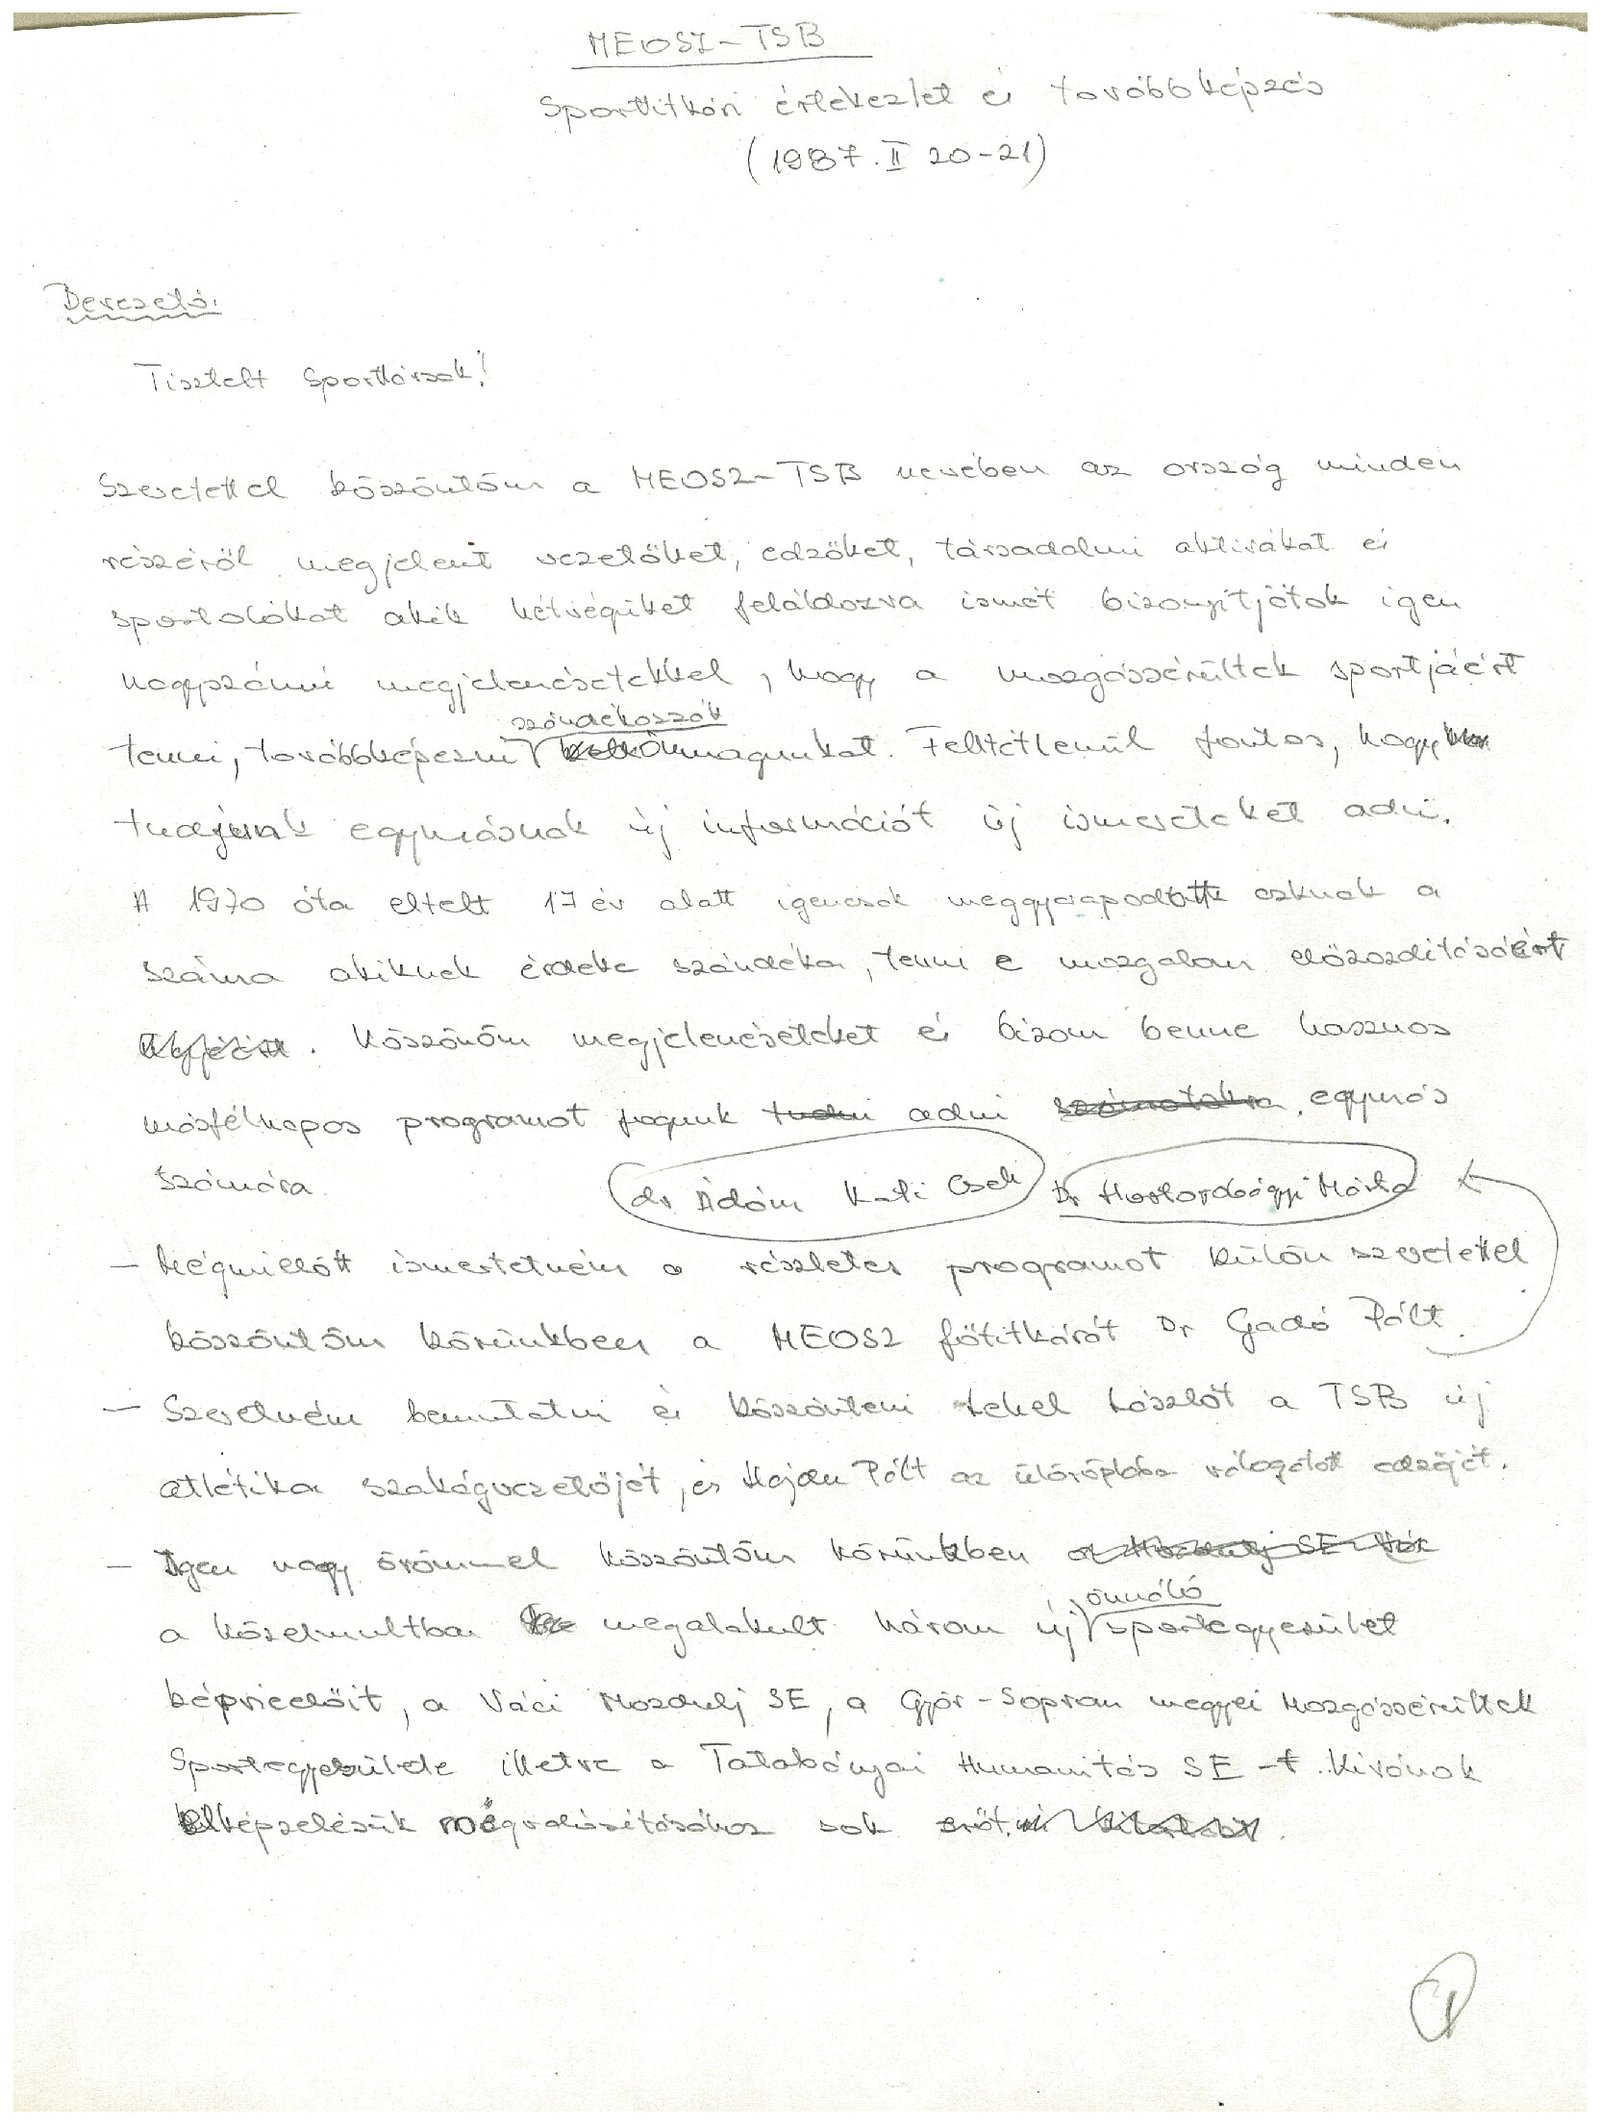 MEOSZ-TSB
Sporttitkári értekezlet és továbbképzés
(1987. II 20-21)
Bevezető:
Tisztelt Sporttársak!
Szeretettel köszöntöm a MEOSZ-TSB nevében az ország minden
részéről megjelent vezetőket, edzőket, társadalmi aktivákat és
sportolókat akik hétvégüket feláldozva ismét bizonyítjátok igen
nagyszámú megjelenésetekkel, hogy a mozgássérültek sportjáért
szándékozzák
tenni, továbbképezni önmagunkat. Feltétlenül fontos, hogy
tudjunk egymásnak új információt új ismereteket adni.
A 1970 óta eltelt 17 év alatt igencsak meggyarapodott azknak a
száma akiknek érdeke szándéka, tenni e mozgalom előrozditásáért
. Köszönöm megjelenéseteket és bizom benne hasznos
másfélnapos programot fogunk tudni adni számotokra egymás
számára.
dr Ádám Kati Dr Hortobágyi Márta
- Mégmielőtt ismertetném a részletes programot külön szeretettel
köszöntöm körünkben a MEOSZ főtitkárát Dr Gadó Pált.
- Szeretném bemutatni és köszönteni Lekel Lászlót a TSB új
atlétika szakágvezetőjét, és Hajdu Pált az ülőröplabda válogatott edzőjét.
- Igen nagy örömmel köszöntöm körünkben a Mozdulj SE
önnáló
a közelmultban megalakult három új sportegyesület
képviselőit, a Váci Mozdulj SE, a Győr-Sopron megyei Mozgássérültek
Sportegyesülete illetve a Tatabányai Humanitás SE-t. Kivánok
elképzelésük mégvalósitásához sok erőt.
1